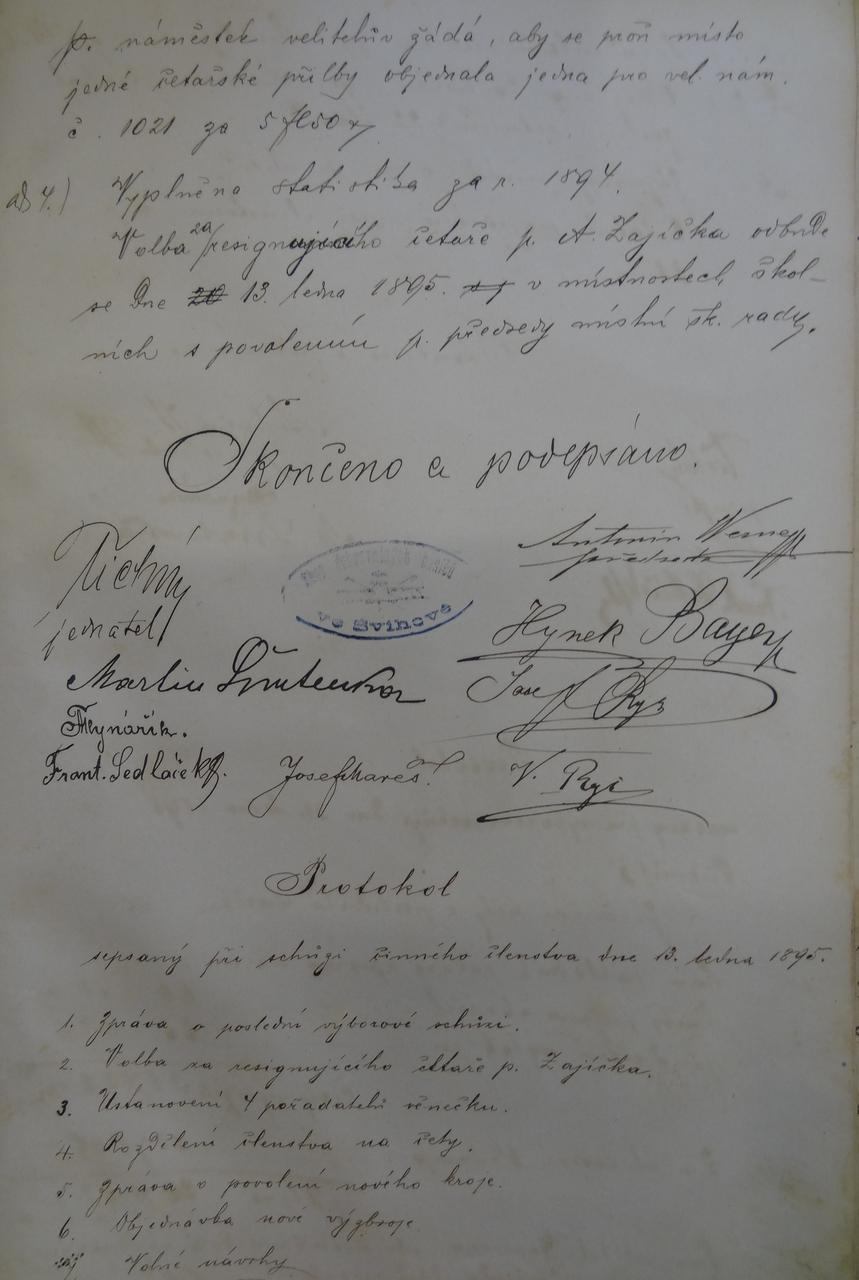 p. náměstek velitelův žádá, aby se proň místo
jedné četařské přilby objednala jedna pro vel. nám.
č. 1021 za 5 fl 50 x
ad 4.) Vyplněna statistika za r. 1894.
Volba za resignujícího četaře p. A. Zajíčka odbude
se dne 13. ledna 1895. v místnostech škol-
ních s povolením p. předsedy místní šk. rady.
Skončeno a podepsáno.
Tichý
jednatel
ve Svinově
Antonín
předseda
Hynek Bayer
Martin
Josef Rys
Mlynářík.
Frant. Sedláček
Josef Mareš.
V. Rys
Protokol
sepsaný při schůzi činného členstva dne 13. ledna 1895.
1. Zpráva o poslední výborové schůzi.
2. Volba za resignujícího četaře p. Zajíčka.
3. Ustanovení 4 pořadatelů věnečku.
4. Rozdělení členstva na čety.
5. Zpráva o povolení nového kroje.
6. Objednávka nové výzbroje
Volné návrhy